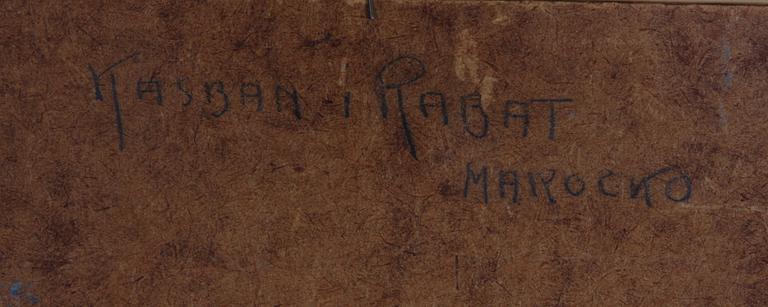 KASBAN I RABAT
MAROCKO